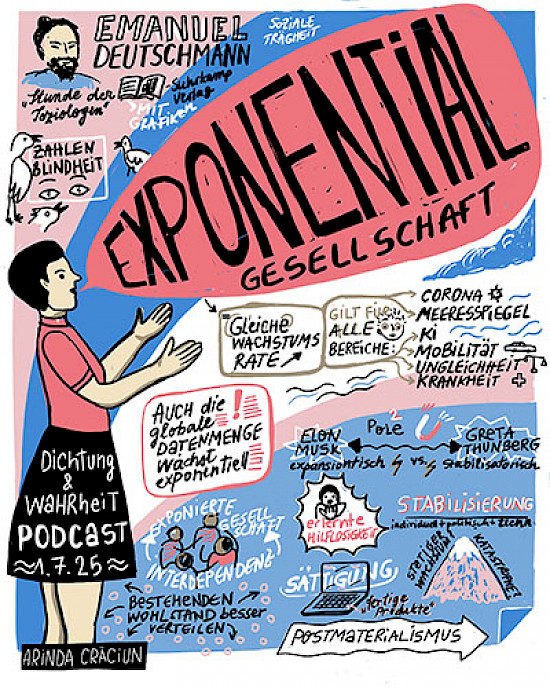 EMANUEL
DEUTSCHMANN
SOZIALE
TRÄGHEIT
"Stunde der
Soziologen"
Suhrkamp
Verlag
MIT
GRAFIKEN
ZAHLEN
BLINDHEIT
EXPONENTIAL
GESELLSCHAFT
GLEICHE
WACHSTUMS
RATE
GILT FÜR
ALLE
BEREICHE:
CORONA
MEERESSPIEGEL
KI
MOBILITÄT
UNGLEICHHEIT
KRANKHEIT
AUCH die
globale
DATENMENGE
wächst
exponentiell
!
2
Pole
ELON
MUSK
GRETA
THUNBERG
expansiontisch vs. Stabilisatorisch
Dichtung
&
WAHRheiT
PODCAST
≈1.7.25≈
EXPONIERTE
GESELL
SCHAFT
INTERDEPENDENZ
erlernte
HILFLOSIGKEIT
STABILISIERUNG
individuell + politisch +
STETIGER
WACHSTUM?
KATASTROPHE?
SÄTTIGUNG
fertige
"Produkte"
BESTEHENDEN
WOHLSTAND besser
VERTEILEN
POSTMATERIALISMUS
ARINDA CRĂCIUN